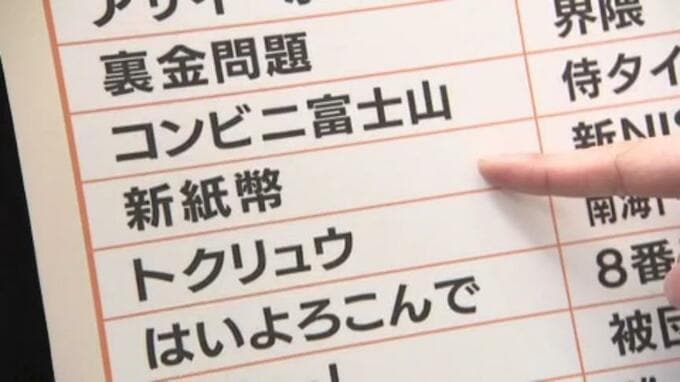 裏金問題
コンビニ富士山
新紙幣
トクリュウ
はいよろこんで
界隈
侍タイ
新NIS
南海
8番
被団